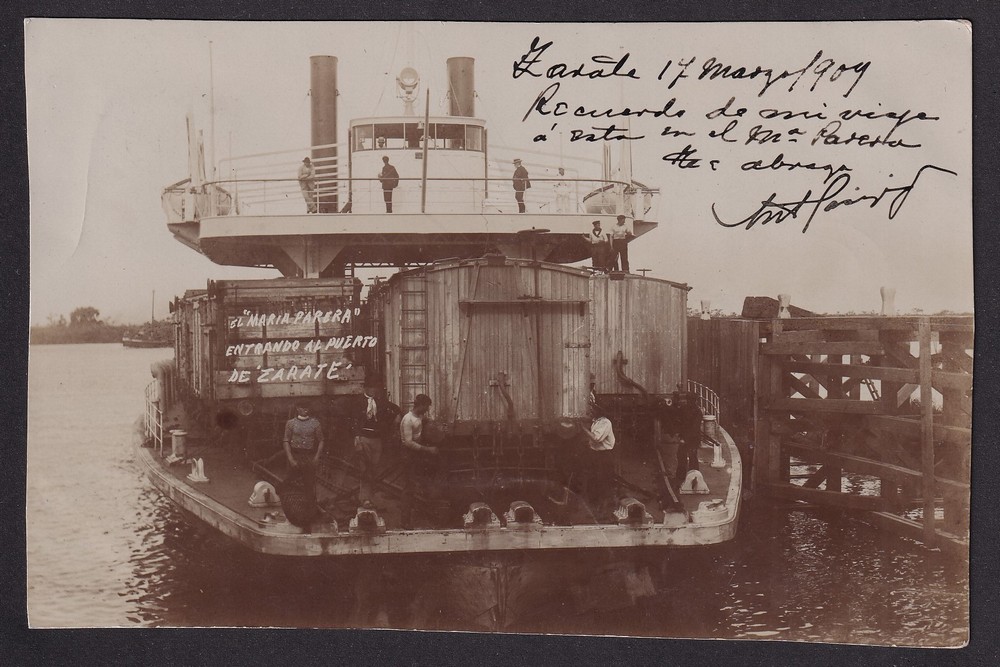 Zarate 17 Marzo/909
Recuerdo de mi viaje
á esta en el Mª Parera
abraza
EL "MARIA PARERA"
ENTRANDO AL PUERTO
DE "ZARATE"